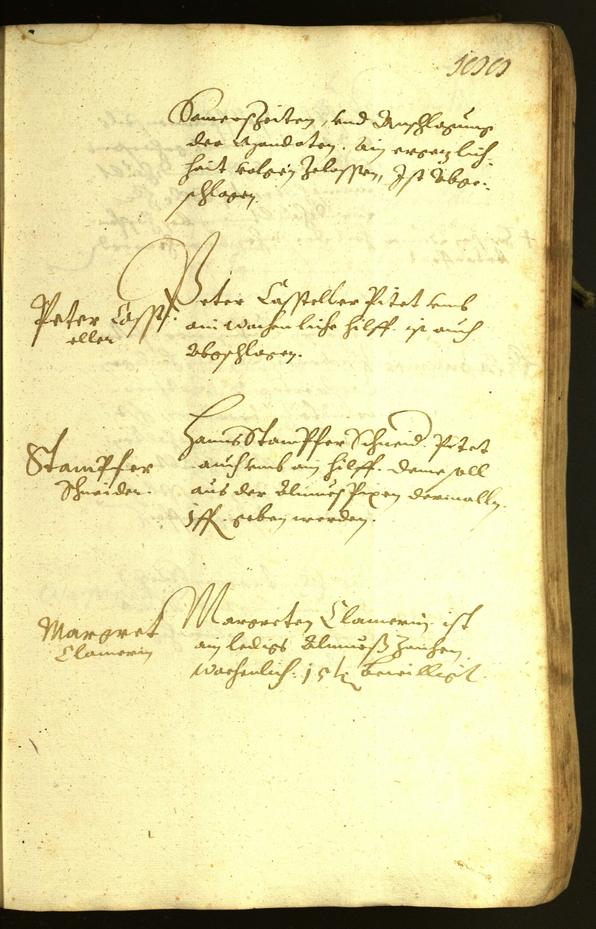 Samerszeiten, und Anschlagung
der Mandaten. Ain ergezlich-
heit volgen zelassen, Ist Abge-
schlagen.
Peter Casst-
eller
Peter Casteller Pitet umb
ain wochenliche hilff. ist auch
Abgschlagen.
Stampfer
Schneider.
Hanns Stampffer Schneid. Pitet
auch umb ain hilff. deme soll
aus der Almues Pixen dermalln.
geben werden.
Margret
Clamerin
Margreten Clamerin ist
ain ledigs Almueß Zaichen.
wochenlich. 15 bewilligt.